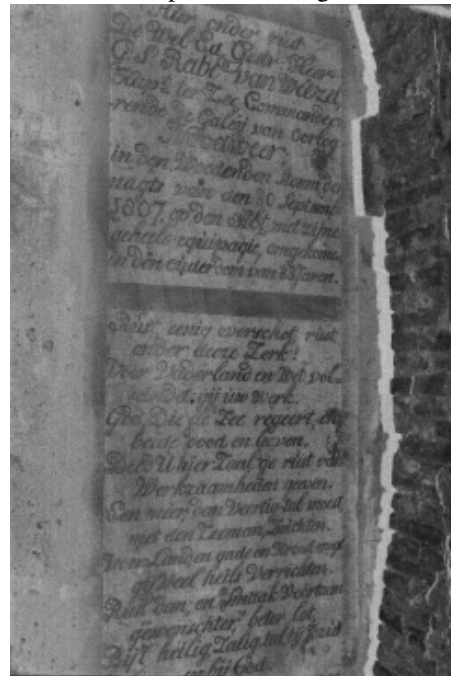 Hier onder rust
De Wel Ed. Gestr. Heer
C. S. Rabé van Weezel
Kapt. ter Zee, Commandee-
rende De Galeij van Oorlog
in den Woedenden Storm des
nagts van den 30 Septemb.
1807, op den met zijne
geheele equipagie, omgekomen
in den ouderdom van Jaren.
eenig overschot, rust
onder, deeze Zerk!
Voor Vaderland en Wet vol-
gij uw Werk.
God, Die de Zee regeert, en
beide dood en leven,
U hier Zal, ge rust van
Werkzaamheden geven.
Een meer dan Veertig tal moest
met den Zeeman, Zuchten.
Voor Land en gade en Kroost nog
gij veel heils Verrichten.
Rust dan, en Smaak Voortaan
gewenschter, beter lot
Blijf heilig Zalig
bij God.